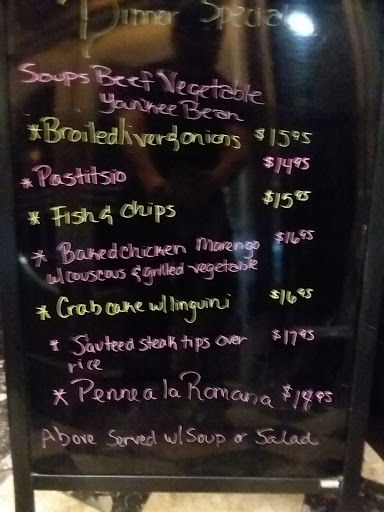 Dinner Specials
Soups Beef Vegetable
Yankee Bean
* Broiled liver & onions $15.95
* Pastitsio $14.95
* Fish & chips $15.95
* Baked chicken Marengo $16.95
w/ couscous & grilled vegetable
* Crab cake w/ linguini $16.95
* Sauteed steak tips over $17.95
rice
* Penne a la Romana $19.95
Above Served w/ Soup or Salad